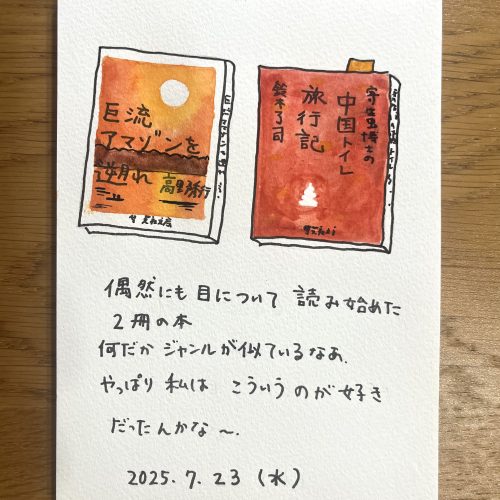 巨流
アマゾンを
遡れ
高野秀行
寄生虫博士の
中国トイレ
旅行記
鈴木了司
偶然にも目について読み始めた
2冊の本
何だかジャンルが似ているなあ、
やっぱり私はこういうのが好き
だったんかな〜.
2025.7.23(水)